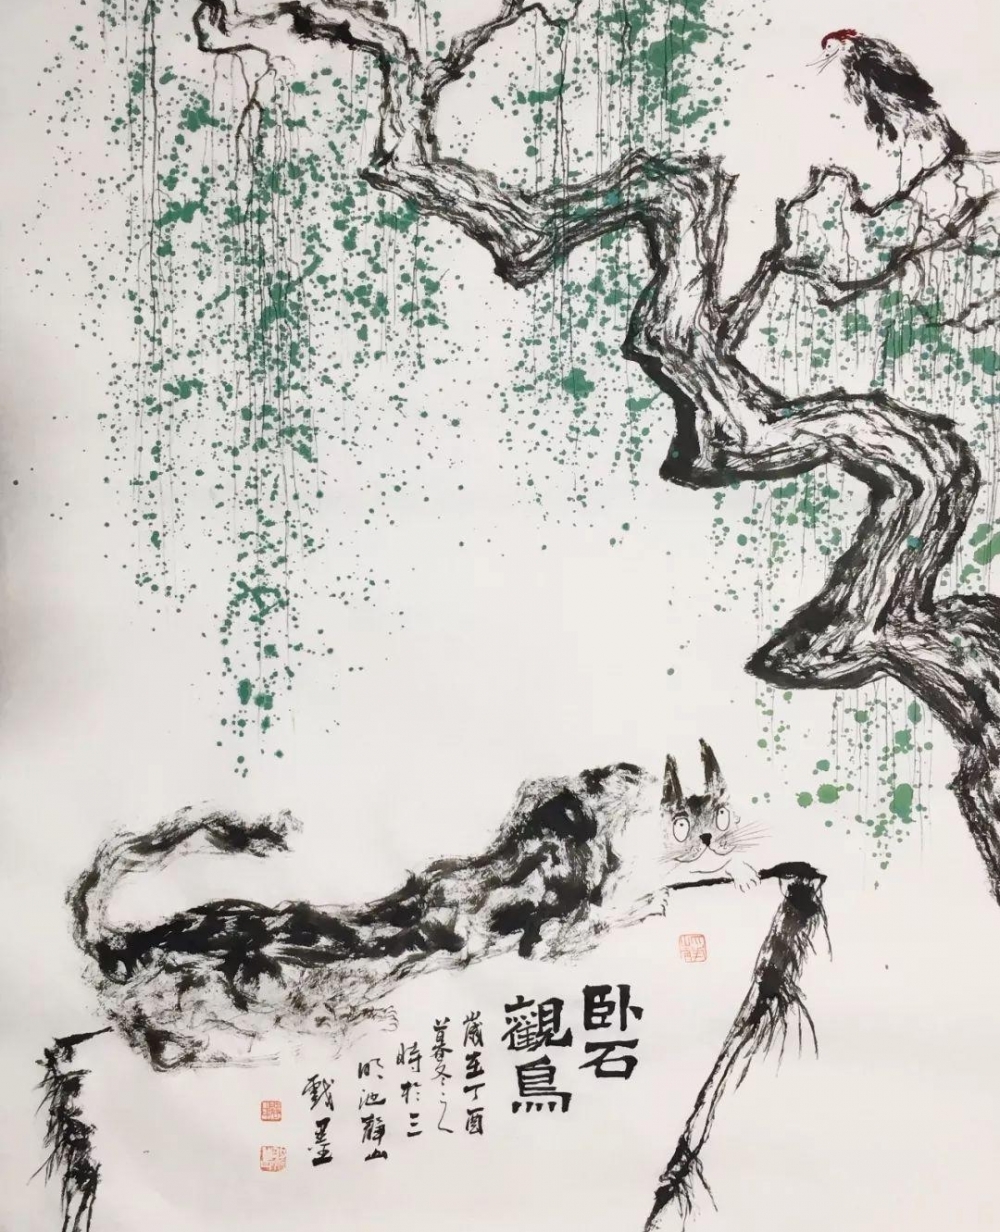 卧石
觀鳥
歲在丁酉
暮冬之
時於三
明池靜山
戲墨